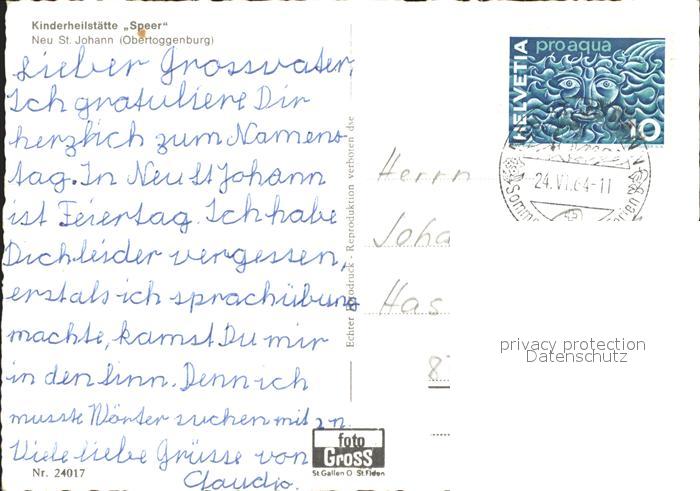 Kinderheilstätte „Speer"
Neu St. Johann (Obertoggenburg)
Lieber Grossvater,
Ich gratuliere Dir
herzlich zum Namens-
tag. In Neu St Johann
ist Feiertag. Ich habe
Dich leider vergessen,
erst als ich sprachübung
machte, kamst Du mir
in den Sinn. Denn ich
musste Wörter suchen mit zn.
Viele liebe Grüsse von
Claudio.
Nr. 24017
Echter Fotodruck - Reproduktion verboten dse
foto
GROSS
St Gallen O St Fiden
HELVETIA
pro aqua
10
24.VI.64-11
Somm
Herrn
Joha
Has
privacy protection
Datenschutz